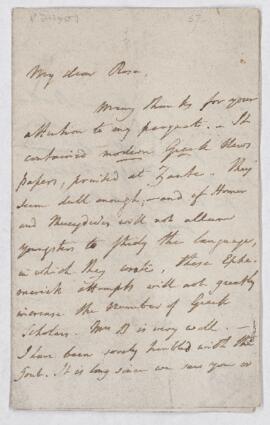 57
My dear Rose,
Many thanks for your
attention to my paquate. — It
contained modern Greek News
papers, printed at Zante. They
seem dull enough, — and if Homer
and Thucydides will not allure
youngsters to study the language,
in which they wrote, these Ephe-
merick attempts will not greatly
increase the number of Greek
Scholars. Mrs D is very well. —
I have been sorely troubled with the
Gout. It is long since we saw you or